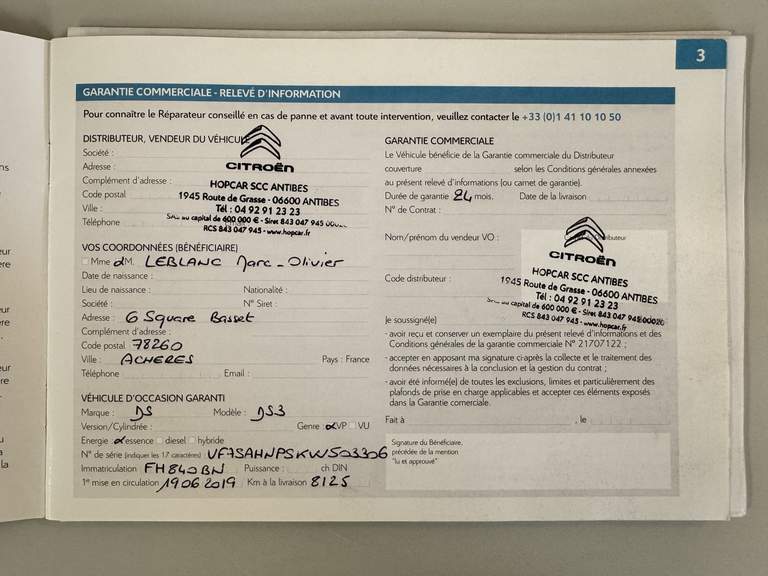 3
GARANTIE COMMERCIALE - RELEVÉ D'INFORMATION
Pour connaître le Réparateur conseillé en cas de panne et avant toute intervention, veuillez contacter le +33 (0)1 41 10 10 50
DISTRIBUTEUR, VENDEUR DU VÉHICULE
Société :
Adresse :
Complément d'adresse :
Code postal
Ville :
Téléphone
CITROËN
HOPCAR SCC ANTIBES
1945 Route de Grasse - 06600 ANTIBES
Tél : 04 92 91 23 23
au capital de 600 000 € - Siret 843 047 945
RCS 843 047 945 - www.hopcar.fr
VOS COORDONNÉES (BÉNÉFICIAIRE)
Mme M. LEBLANC Marc-Olivier
Date de naissance :
Lieu de naissance : Nationalité :
Société : N° Siret :
Adresse : 6 Square Basset
Complément d'adresse :
Code postal 78260
Ville : ACHERES Pays : France
Téléphone Email :
VÉHICULE D'OCCASION GARANTI
Marque : DS Modèle : DS3
Version/Cylindrée : Genre : VP VU
Energie : essence diesel hybride
N° de série (indiquer les 17 caractères) VF7SAHNPSKW503306
Immatriculation FH840BN Puissance : ch DIN
1e mise en circulation 19062019 Km à la livraison 8125
GARANTIE COMMERCIALE
Le Véhicule bénéficie de la Garantie commerciale du Distributeur
couverture selon les Conditions générales annexées
au présent relevé d'informations (ou carnet de garantie).
Durée de garantie 24 mois. Date de la livraison
N° de Contrat :
Nom/prénom du vendeur VO :
Code distributeur :
CITROËN
HOPCAR SCC ANTIBES
1945 Route de Grasse - 06600 ANTIBES
Tél : 04 92 91 23 23
au capital de 600 000 € - Siret 843 047 945 00020
RCS 843 047 945 - www.hopcar.fr
Je soussigné(e)
- avoir reçu et conserver un exemplaire du présent relevé d'informations et des
Conditions générales de la garantie commerciale N° 21707122 ;
- accepter en apposant ma signature ci-après la collecte et le traitement des
données nécessaires à la conclusion et la gestion du contrat ;
- avoir été informé(e) de toutes les exclusions, limites et particulièrement des
plafonds de prise en charge applicables et accepter ces éléments exposés
dans la Garantie commerciale.
Fait à , le
Signature du Bénéficiaire,
précédée de la mention
"lu et approuvé"